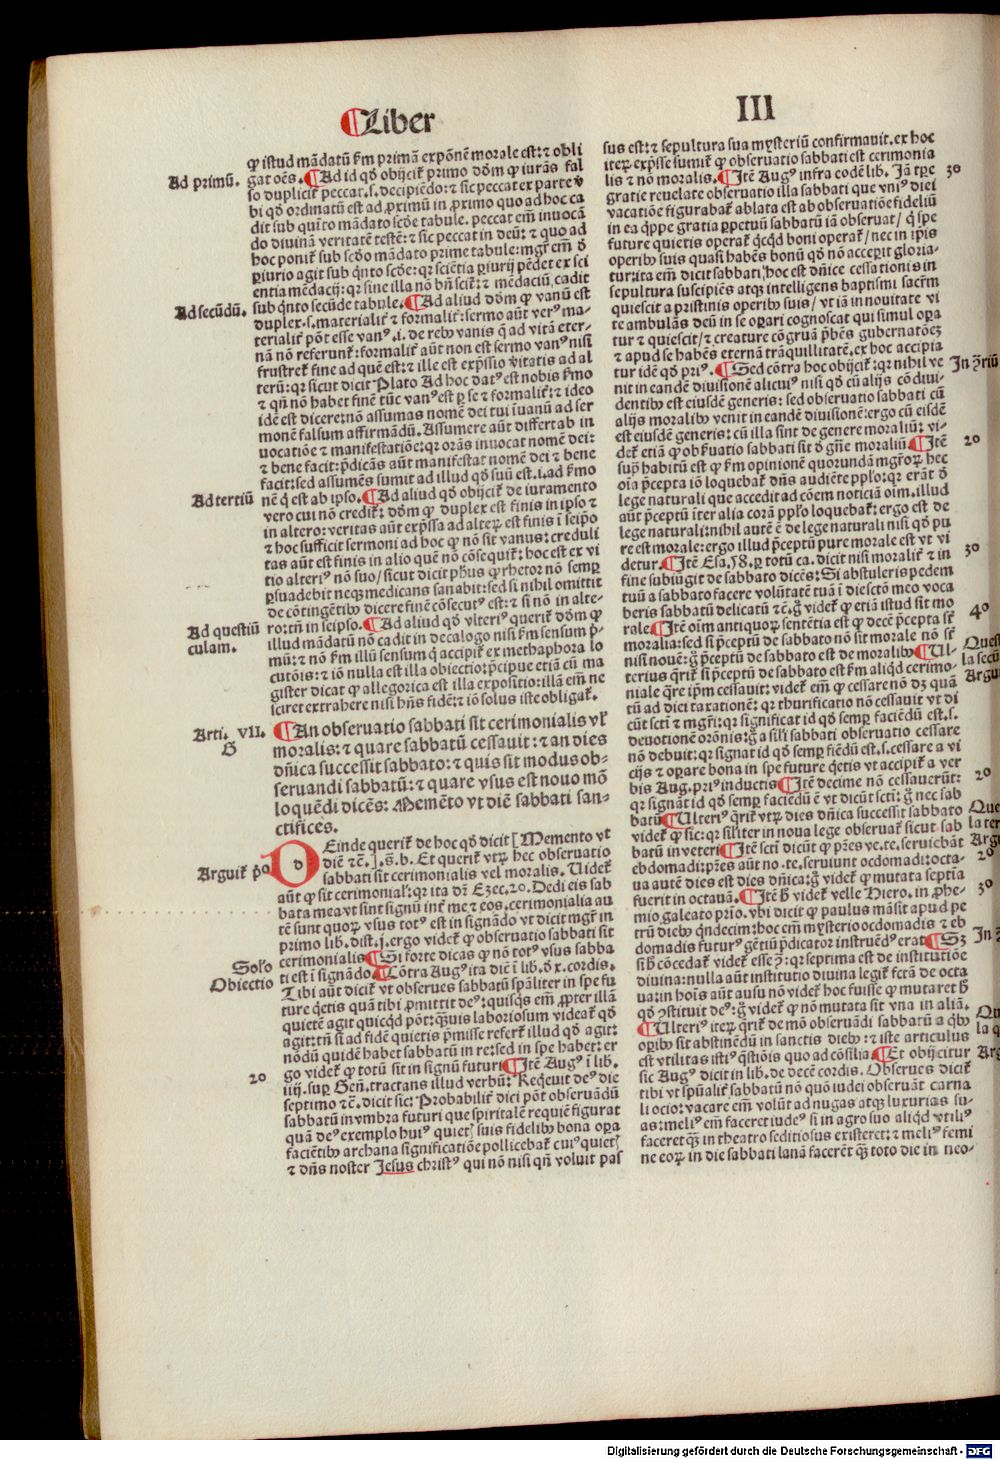 ¶Liber
III
Ad primū.
Ad secūdū.
Ad tertiū
Ad questiū
culam.
Arti. VII.
G
Arguiť p̄o
Solō
Obiectio
20
ꝙ istud mādatū ẜm primā expōnem morale est: ⁊ obli
gat oēs. ¶Ad id qđ obijciť primo dōm ꝙ iurās fal
so dupliciť peccat. s. decipiēdo: ⁊ sic peccat ex parte v̄
bi qđ ordinatū est ad ꝓximū in ꝓximo quo ad hoc ca
dit sub quīto mādato scđe tabule. peccat em̄ inuocā
do diuinā veritatē testē: ⁊ sic peccat in deū: ⁊ quo ad
hoc poniť sub scđo mādato prime tabule: mgr̄ em̄ đ
ꝑiurio agit sub qnto scđe: qꝛ sciētia ꝑiurij pēdet ex sci
entia mēdacij: qꝛ sine illa nō bn̄ sciť: ⁊ mēdaciū cadit
sub qnto secūde tabule. ¶Ad aliud dōm ꝙ vanū est
duplex. s. materialiť ⁊ formaliť: sermo aūt verꝰ ma-
terialiť pōt esse vanꝰ. i. de rebꝰ vanis q̄ ad vitā eter-
nā nō referunť: formaliť aūt non est sermo vanꝰ nisi
frustreť fine ad quē est: ⁊ ille est exp̄ssio v̄itatis ad al
terū: qꝛ sicut dicit Plato Ad hoc datꝰ est nobis ẜmo
⁊ qn̄ nō habet finē tūc vanꝰ est ꝑ se ⁊ formaliť: ⁊ ideo
idē est dicere: nō assumas nomē dei tui ī uanū ad ser
monē falsum affirmādū. Assumere aūt differt ab in
uocatiōe ⁊ manifestatiōe: qꝛ orās inuocat nomē dei:
⁊ bene facit: p̄dicās aūt manifestat nomē dei ⁊ bene
facit: sed assumēs sumit ad illud qđ suū est. i. ad ẜmo
nē q̄ est ab ipso. ¶Ad aliud qđ obijciť de iuramento
vero cui nō crediť: dōm ꝙ duplex est finis in ipso ⁊
in altero: veritas aūt exp̄ssa ad alteꝝ est finis ī seip̄o
⁊ hoc sufficit sermoni ad hoc ꝙ nō sit vanus: creduli
tas aūt est finis in alio quē nō cōsequiť: hoc est ex vi
tio alteriꝰ nō suo / sicut dicit ph̄us ꝙ rhetor nō semꝑ
ꝑsuadebit neqꝫ medicans sanabit: sed si nihil omittit
de cōtingētibꝰ dicere finē cōsecutꝰ est: ⁊ si nō in alte-
ro: tn̄ in seipso. ¶Ad aliud qđ vlteriꝰ queriť dōm ꝙ
illud mādatū nō cadit in decalogo nisi ẜm sensum p̄-
mū: ⁊ nō ẜm illū sensum q̄ accipiť ex methaphora lo
cutōis: ⁊ iō nulla est illa obiectio: p̄cipue etiā cū ma
gister dicat ꝙ allegorica est illa expositio: illā em̄ ne
sciret extrahere nisi hn̄s fidē: ⁊ iō solus iste obligať.
¶An obseruatio sabbati sit cerimonialis vľ
moralis: ⁊ quare sabbatū cessauit: ⁊ an dies
dn̄ica successit sabbato: ⁊ quis sit modus ob-
seruandi sabbatū: ⁊ quare vsus est nouo mō
loquēdi dicēs: Memēto vt diē sabbati san-
ctifices.
DEinde queriť de hoc qđ dicit [Memento vt
diē ⁊c̄.] .§. b. Et queriť vtꝝ hec obseruatio
sabbati sit cerimonialis vel moralis. Uideť
aūt ꝙ sit cerimonial̕: qꝛ ita dr̄ Ezec. 20. Dedi eis sab
bata mea vt sint signū int̄ me ⁊ eos. cerimonialia au
tē sunt quoꝝ vsus totꝰ est in signādo vt dicit mgr̄ in
primo lib. dist. j. ergo videť ꝙ obseruatio sabbati sit
cerimonialis ¶Si forte dicas ꝙ nō totꝰ vsus sabba
ti est ī signādo ¶Cōtra Augꝰ ita diē ī lib. đ x. cordis.
Tibi aūt diciť vt obserues sabbatū sp̄aliter in spe fu
ture q̄etis quā tibi ꝓmittit deꝰ: quisq̄s em̄ ꝓpter illā
quietē agit quicqđ pōt: q̄uis laboriosum videať qđ
agit: tn̄ si ad fidē quietis p̄misse referť illud qđ agit:
nōdū quidē habet sabbatū in re: sed in spe habet: er
go videť ꝙ totū sit in signū futuri ¶Itē Augꝰ ī lib.
iiij. suꝑ Gen̄. tractans illud verbū: Reqeuit deꝰ die
septimo ⁊c̄. dicit sic: Probabiliť dici pōt obseruādū
sabbatū in vmbra futuri que spiritalē requiē figurat
quā deꝰ exemplo huiꝰ quietꝭ suis fidelibꝰ bona oꝑa
faciētibꝰ archana significatiōe pollicebať cuiꝰ quietꝭ
⁊ dn̄s noster Jesus christꝰ qui nō nisi qn̄ voluit pas
sus est: ⁊ sepultura sua mysteriū confirmauit. ex hoc
iteꝝ exp̄sse sumiť ꝙ obseruatio sabbati est cerimonia
lis ⁊ nō moralis. ¶Itē Augꝰ infra eodē lib. Jā tp̄e
gratie reuelate obseruatio illa sabbati que vniꝰ diei
vacatiōe figurabať ablata est ab obseruatiōe fideliū
in ea q̄ppe gratia ꝑpetuū sabbatū iā obseruat / q̄ spe
future quietis operať qcqđ boni operať / nec in ip̄is
operibꝰ suis quasi habēs bonū qđ nō accepit gloria-
tur: ita em̄ dicit sabbati / hoc est dn̄ice cessationis in
sepultura suscipiēs atqꝫ intelligens baptismi sacr̄m
quiescit a pristinis operibꝰ suis / vt iā in nouitate vi
te ambulās deū in se oꝑari cognoscat qui simul oꝑa
tur ⁊ quiescit / ⁊ creature cōgruā p̄bēs gubernatōeꝫ
⁊ apud se habēs eternā trāquillitatē. ex hoc accipia
tur idē qđ priꝰ. ¶Sed cōtra hoc obijciť: qꝛ nihil ve
nit in eandē diuisionē alicuiꝰ nisi qđ cū alijs cōdiui-
dentibꝰ est eiusdē generis: sed obseruatio sabbati cū
alijs moralibꝰ venit in eandē diuisionē: ergo cū eisdē
est eiusdē generis: cū illa sint de genere moraliū: vi-
deť etiā ꝙ obẜuatio sabbati sit đ gn̄e moraliū ¶Itē
supͣ habitū est ꝙ ẜm opinionē quorundā mgr̄oꝝ hec
oīa p̄cepta iō loquebať dn̄s audiēte ppl̄o: qꝛ erāt đ
lege naturali que accedit ad cōem noticiā oīm. illud
aūt p̄ceptū īter alia corā ppl̄o loquebať: ergo est de
lege naturali: nihil autē ē de lege naturali nisi qđ pu
re est morale: ergo illud p̄ceptū pure morale est vt vi
detur. ¶Itē Esa. 58. ꝑ totū ca. dicit nisi moraliť ⁊ in
fine subiūgit de sabbato dicēs: Si abstuleris pedem
tuū a sabbato facere volūtatē tuā ī die sctō meo voca
beris sabbatū delicatū ⁊c̄. g̊ videť ꝙ etiā istud sit mo
rale ¶Itē oīm antiquoꝝ sentētia est ꝙ decē p̄cepta sť
moralia: sed si p̄ceptū de sabbato nō sit morale nō sť
nisi nouē: g̊ p̄ceptū de sabbato est de moralibꝰ ¶Ul-
terius q̄riť si p̄ceptū de sabbato est ẜm aliqd cerimo-
niale q̄re ip̄m cessauit: videť em̄ ꝙ cessare nō dꝫ quā
tū ad diei taxationē: qꝛ thurificatio nō cessauit vt di
cūt scti ⁊ mgr̄i: qꝛ significat id qđ semꝑ faciēdū est. s.
deuotionē orōnis: g̊ a sil̕i sabbati obseruatio cessare
nō debuit: qꝛ signat id qđ semꝑ fiēdū est. s. cessare a vi
cijs ⁊ oꝑare bona in spe future q̄etis vt accipiť a ver
bis Aug. priꝰ inductis ¶Itē decime nō cessauerūt:
qꝛ signāt id qđ semꝑ faciēdū ē vt dicūt scti: g̊ nec sab
batū ¶Ulteriꝰ q̄riť vtꝝ dies dn̄ica successit sabbato
videť ꝙ sic: qꝛ sil̕iter in noua lege obseruať sicut sab
batū in veteri ¶Itē scti dicūt ꝙ p̄res ve. te. seruiebāt
ebdomadi: p̄res aūt no. te. seruiunt ocdomadi: octa-
ua autē dies est dies dn̄ica: g̊ videť ꝙ mutata septīa
fuerit in octauā. ¶Itē h̄ videť velle Hiero. in ꝓhe-
mio galeato prīo. vbi dicit ꝙ paulus māsit apud pe
trū diebꝰ qndecim: hoc em̄ mysterio ocdomadis ⁊ eb
domadis futurꝰ gētiū p̄dicator instruēdꝰ erat ¶Sꝫ
si h̄ cōcedať videť esse ꝯ̄: qꝛ septima est de institutiōe
diuina: nulla aūt institutio diuina legiť fctā de octa
ua: in hoīs aūt ausu nō videť hoc fuisse ꝙ mutaret h̄
qđ ꝯstituit deꝰ: g̊ videť ꝙ nō mutata sit vna in aliā.
¶Ulteriꝰ iteꝝ q̄riť de mō obseruādi sabbatū a qbꝰ
oꝑibꝰ sit abstinēdū in sanctis diebꝰ: ⁊ iste articulus
est vtilitas istiꝰ q̄stiōis quo ad cōsilia ¶Et obijcitur
sic Augꝰ dicit in lib. de decē cordis. Obserues diciť
tibi vt sp̄ualiť sabbatū nō quō iudei obseruāt carna
li ocio: vacare em̄ volūt ad nugas atqꝫ luxurias su-
as: meliꝰ em̄ faceret iudeꝰ si in agro suo aliqd vtiliꝰ
faceret q̄ꝫ in theatro seditiosus existeret: ⁊ meliꝰ femi
ne eoꝝ in die sabbati lanā facerēt q̄ꝫ toto die in neo-
30
In ꝯ̄riū
20
30
40
Ques
la secū
Argui
20
Que
la ter
Arg
20
30
In ꝯ̄
Qu
la q
Arg
Digitalisierung gefördert durch die Deutsche Forschungsgemeinschaft - DFG